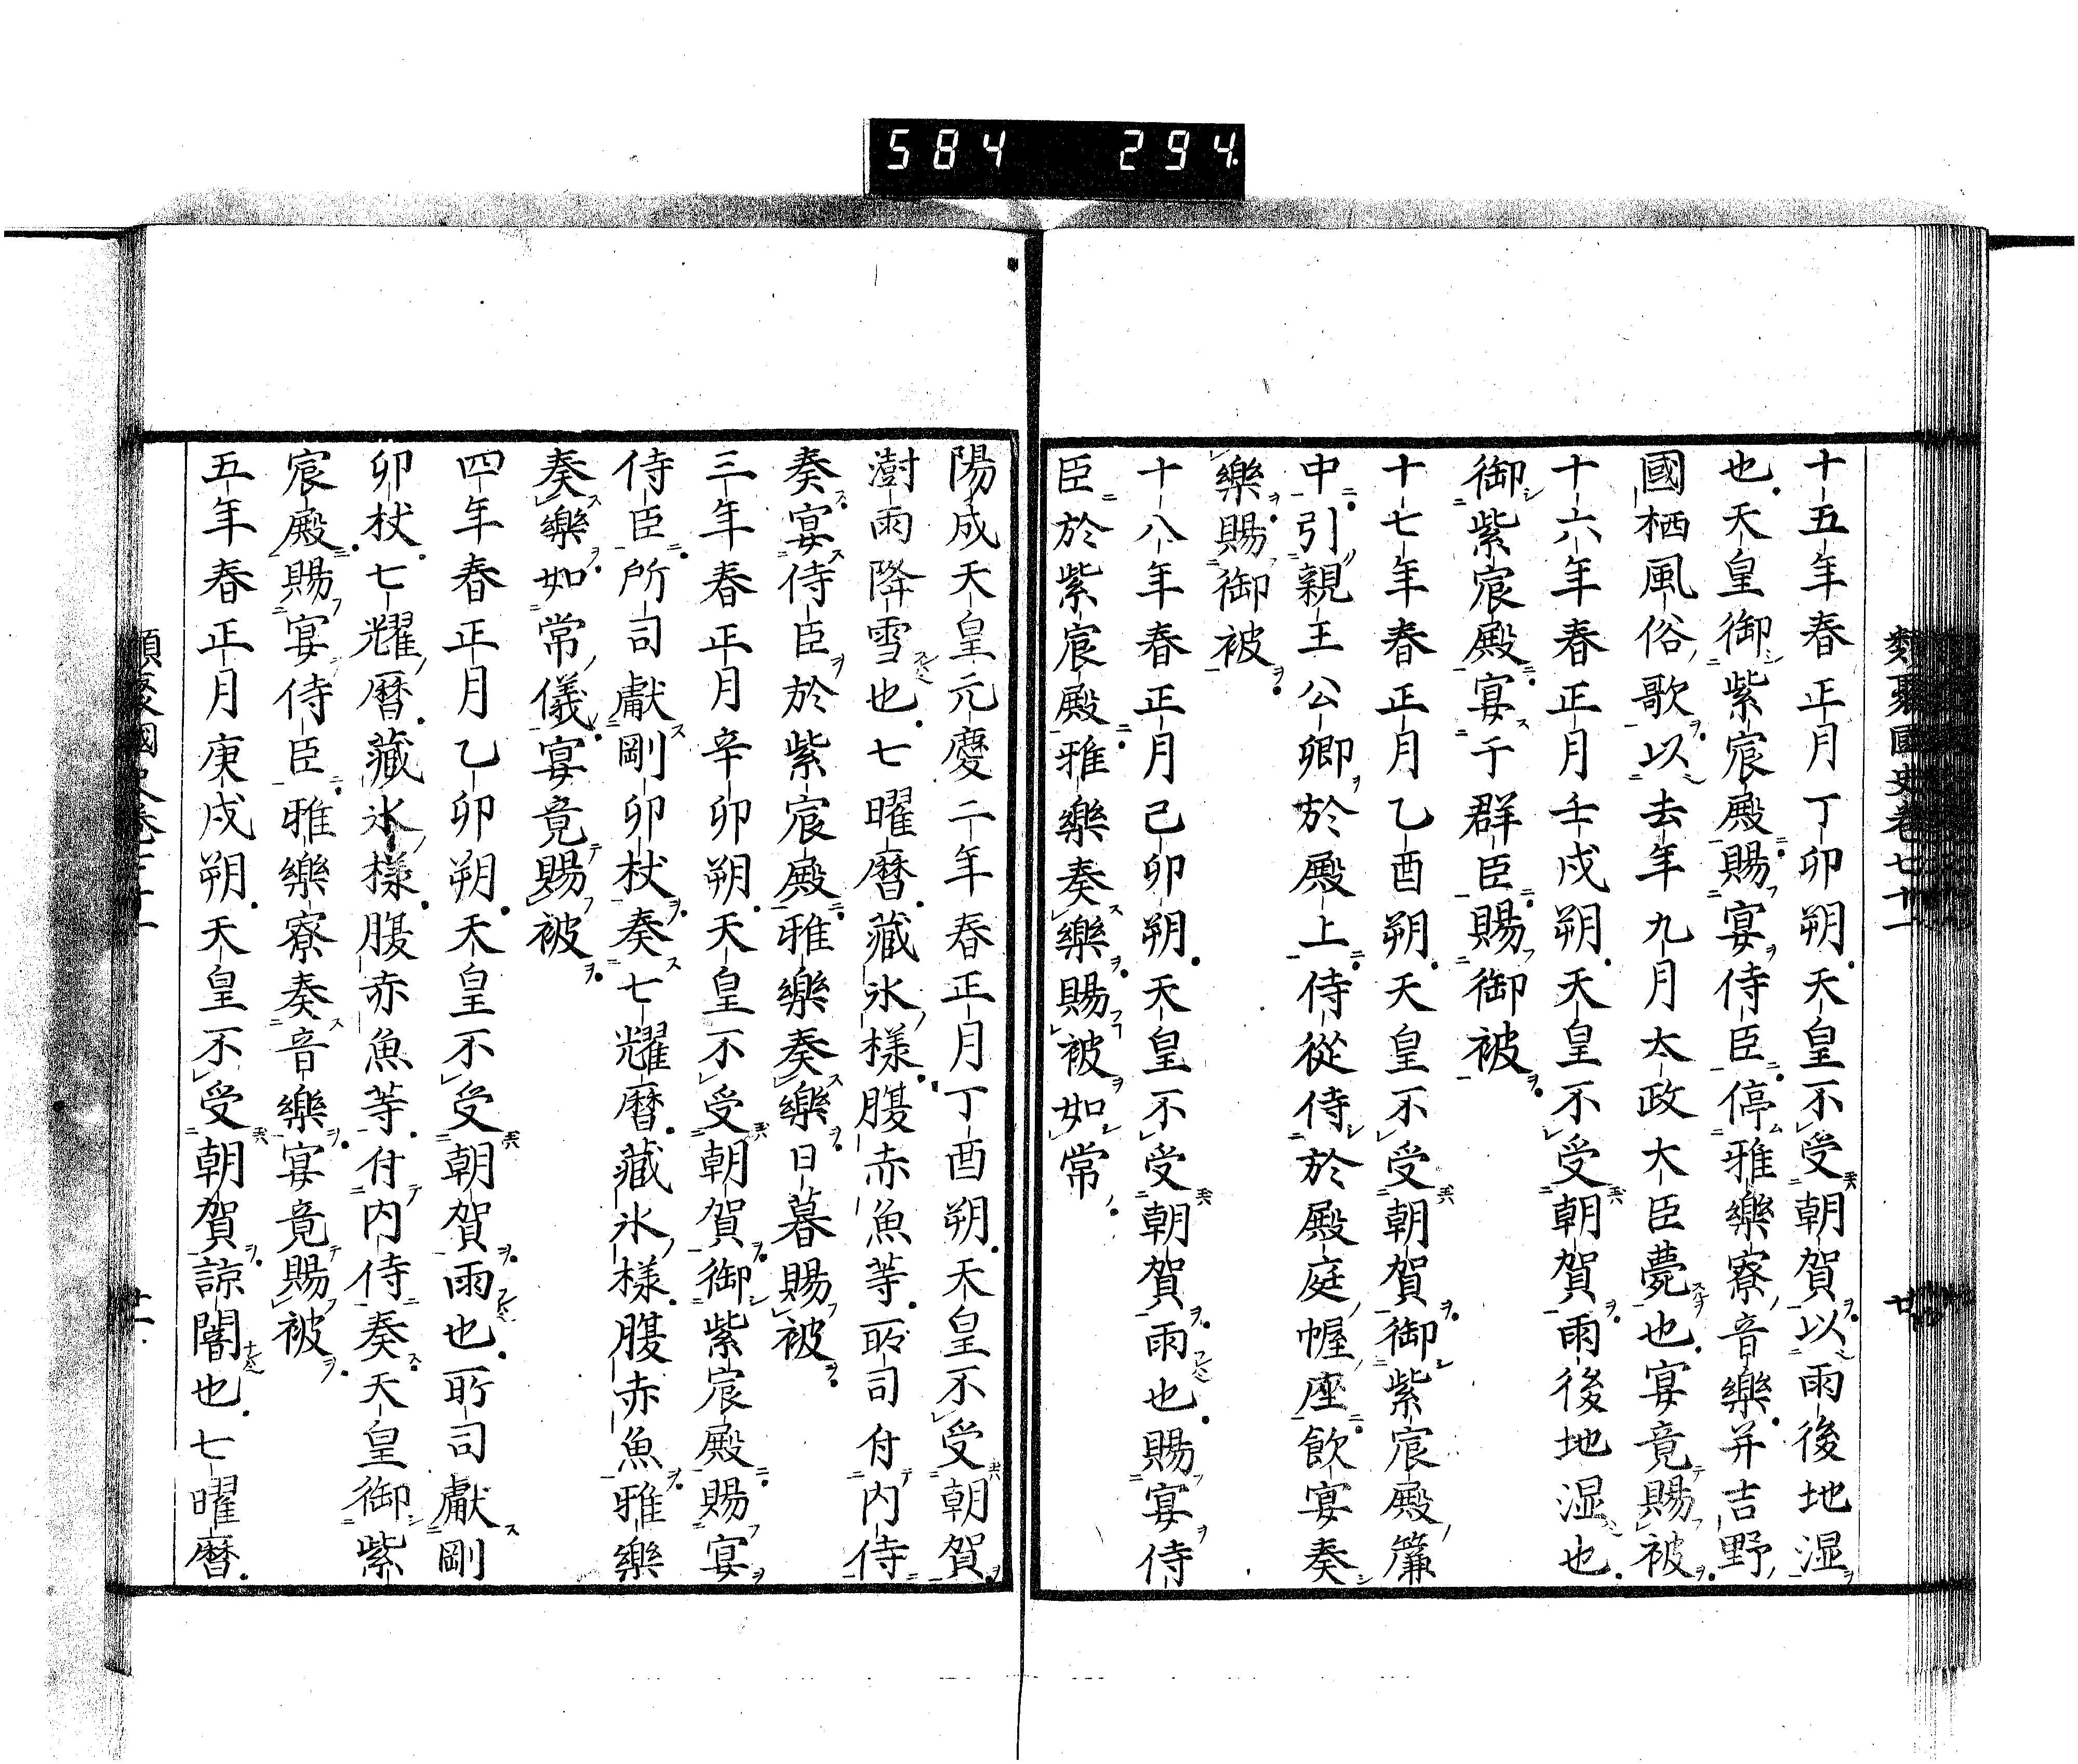 584 294
類聚國史卷七十一 廿
十五年春正月丁卯朔天皇不受朝賀以雨後地湿
也天皇御紫宸殿賜宴侍臣停雅樂寮音樂并吉野
國栖風俗歌以去年九月太政大臣薨也宴竟賜被
十六年春正月壬戌朔天皇不受朝賀雨後地湿也
御紫宸殿宴于群臣賜御被
十七年春正月乙酉朔天皇不受朝賀御紫宸殿簾
中引親王公卿於殿上侍從侍於殿庭幄座飲宴奏
樂賜御被
十八年春正月己卯朔天皇不受朝賀雨也賜宴侍
臣於紫宸殿雅樂奏樂賜被如常
陽成天皇元慶二年春正月丁酉朔天皇不受朝賀
澍雨降雪也七曜曆藏氷様腹赤魚等所司付内侍
奏宴侍臣於紫宸殿雅樂奏樂日暮賜被
三年春正月辛卯朔天皇不受朝賀御紫宸殿賜宴
侍臣所司獻剛卯杖奏七耀曆藏氷様腹赤魚雅樂
奏樂如常儀宴竟賜被
四年春正月乙卯朔天皇不受朝賀雨也所司獻剛
卯杖七耀曆藏氷様腹赤魚等付内侍奏天皇御紫
宸殿賜宴侍臣雅樂寮奏音樂宴竟賜被
五年春正月庚戌朔天皇不受朝賀諒闇也七曜曆